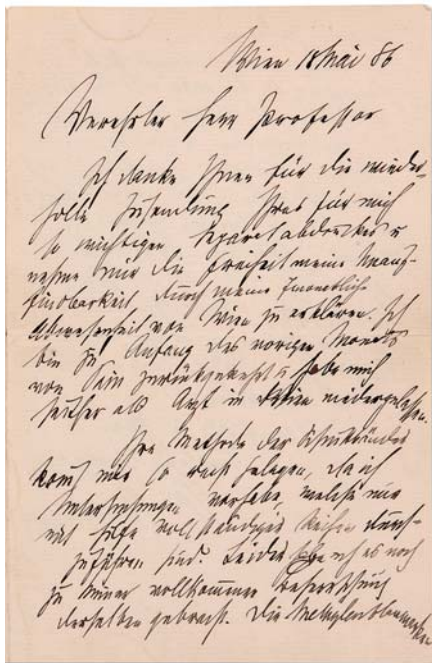 Wien 18 Mai 86
Verehrter Herr Professor
Ich danke Ihnen für die wieder-
holte Zusendung Ihres für mich
so wichtigen Separatabdruckes u
nehme mir die Freiheit meine
durch meine
Abwesenheit von Wien zu erklären. Ich
bin zu Anfang des vorigen Monats
von zurückgekehrt u habe mich
seither als Arzt in Wien niedergelassen.
Ihre Methode der
kommt mir so recht gelegen, da ich
Untersuchungen vorhabe, welche nur
mit Hilfe vollständiger Reihen durch-
zuführen sind. Leider habe ich es noch
zu keiner vollkommenen Beherrschung
derselben gebracht. Die